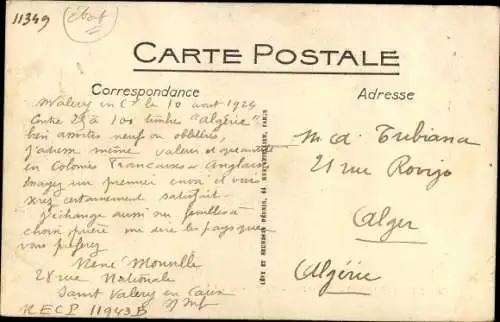 11349
état
CARTE POSTALE
Correspondance
Adresse
Valery en Cx le 10 aout 1924
Contre 25 à 100 timbre "Algérie"
bien assortis neuf ou oblitérés
j'adresse même valeur et quantité
en Colonies Francaises et Anglaises
un premier envoi et vous
serez certainement satisfait.
J'échange aussi sur feuilles à
choix prière me dire les pays que
vous préférez
René
28 rue Nationale
Saint Valery en Caux
S Inf
R E C P 11943 B
LÉVY ET NEURDEIN RÉUNIS, 44 RUE LETELLIER, PARIS
M cd. Tubiana
21 rue Rovigo
Alger
Algérie